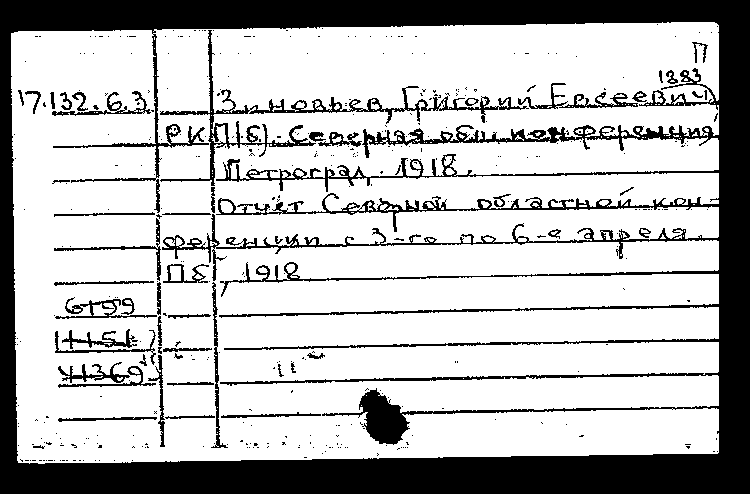 П
1883
17.132.6.3 Зиновьев, Григорий Евсеевич)
РКП(б). Северная обл. конференция
Петроград. 1918.
Отчет Северной областной кон-
ференции с 3-го по 6-е апреля.
Пб, 1918
6199
11151
41369